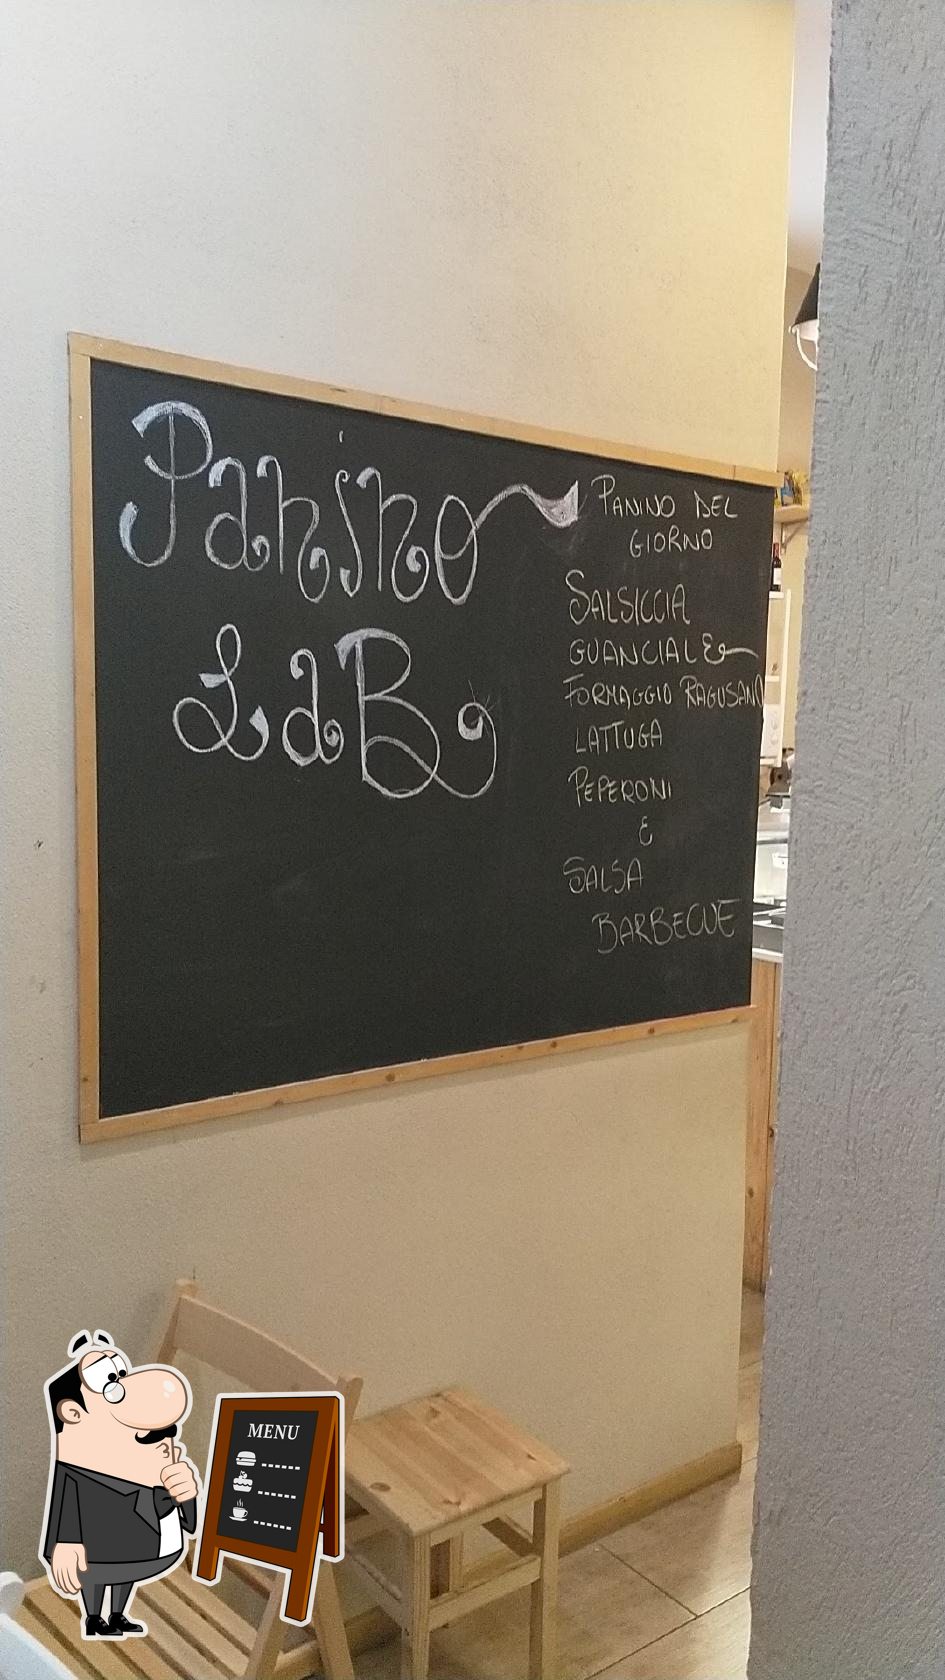 Panino
LaB
PANINO DEL
GIORNO
SALSICCIA
GUANCIALE
FORMAGGIO RAGUSANO
LATTUGA
PEPERONI
E
SALSA
BARBECUE
MENU